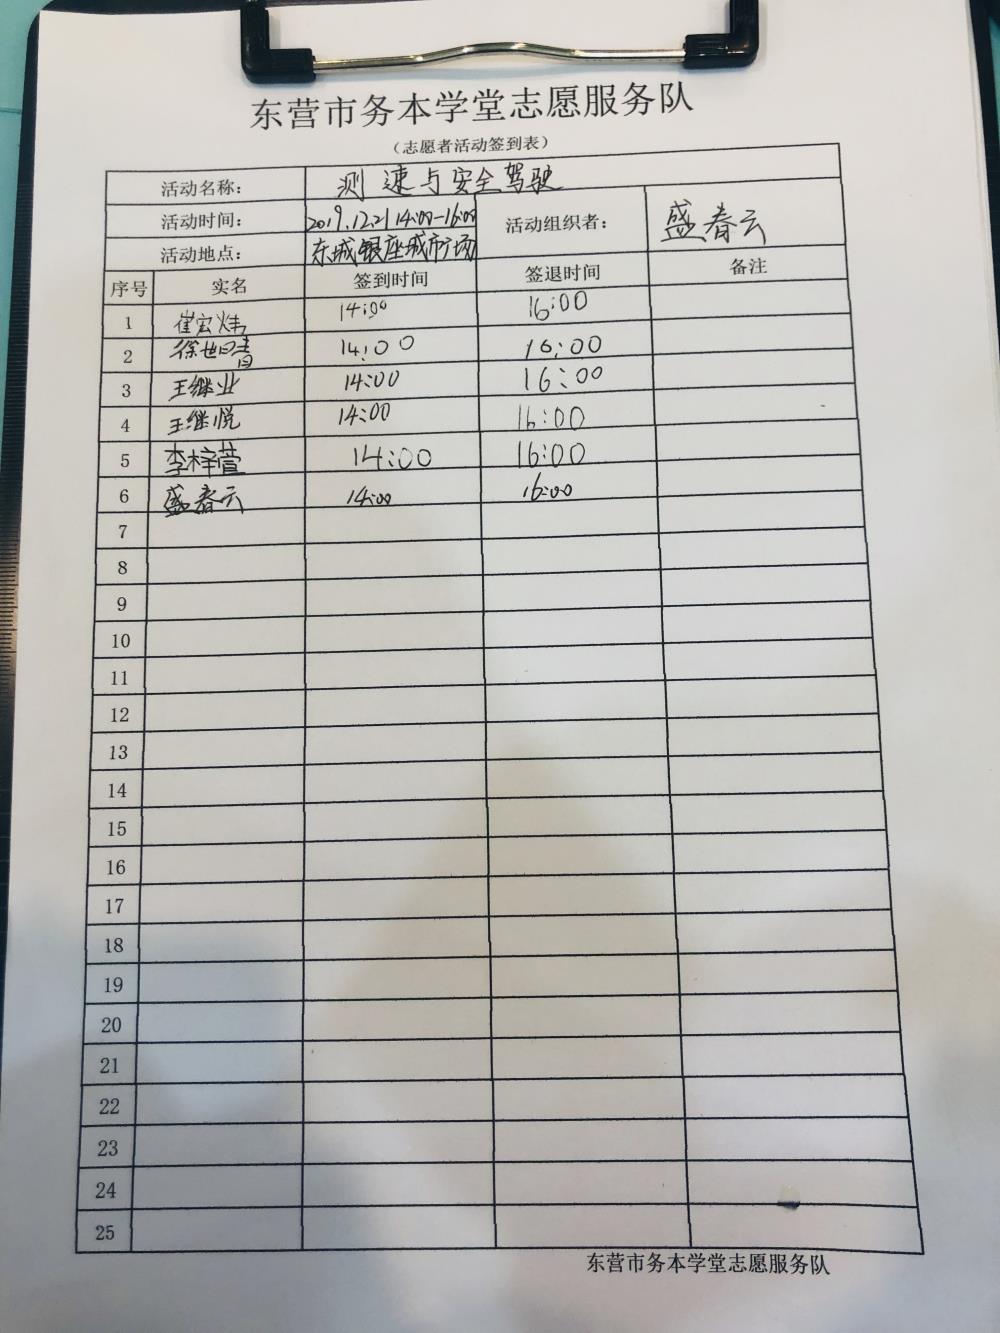 东营市务本学堂志愿服务队
（志愿者活动签到表）
活动名称： 测速与安全驾驶
活动时间： 2019.12.21 14:00-16:00 活动组织者： 盛春云
活动地点： 东城银座城市广场
序号 实名 签到时间 签退时间 备注
1 崔宏炜 14:00 16:00
2 徐世晴 14:00 16:00
3 王继业 14:00 16:00
4 王继悦 14:00 16:00
5 李梓萱 14:00 16:00
6 盛春云 14:00 16:00
7
8
9
10
11
12
13
14
15
16
17
18
19
20
21
22
23
24
25
东营市务本学堂志愿服务队